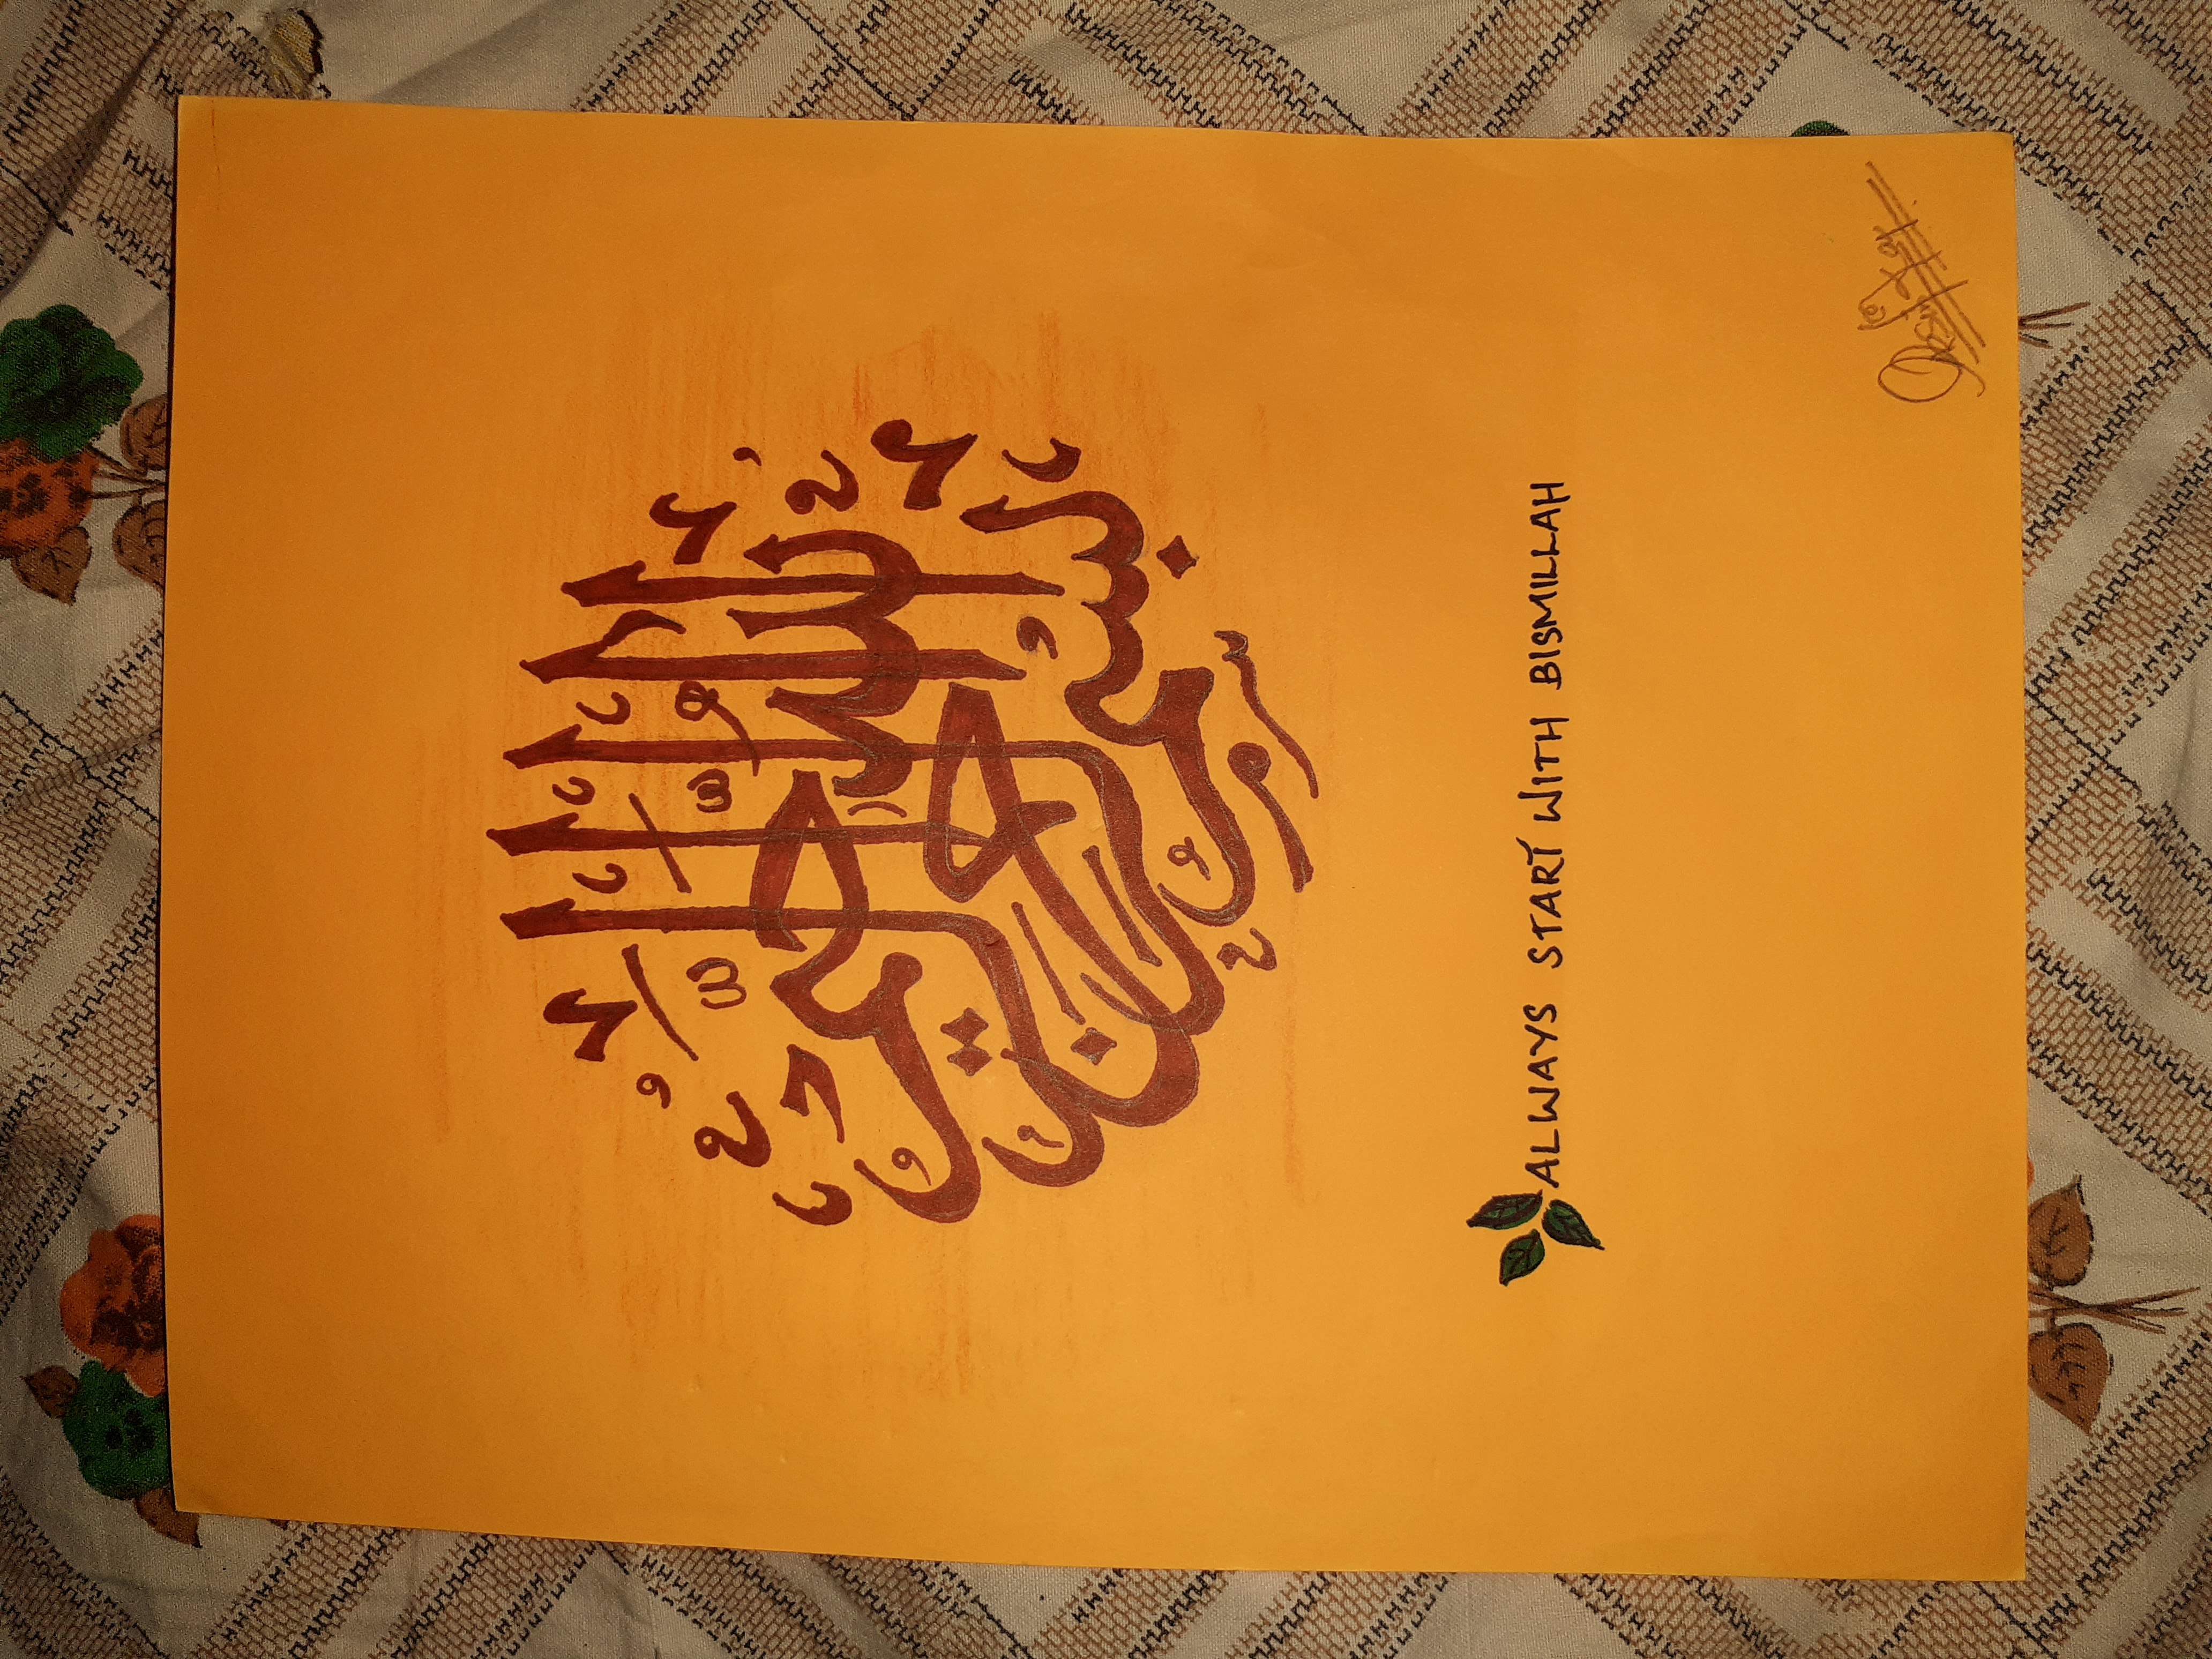 بسم الله الرحمن الرحيم
ALWAYS START WITH BISMILLAH